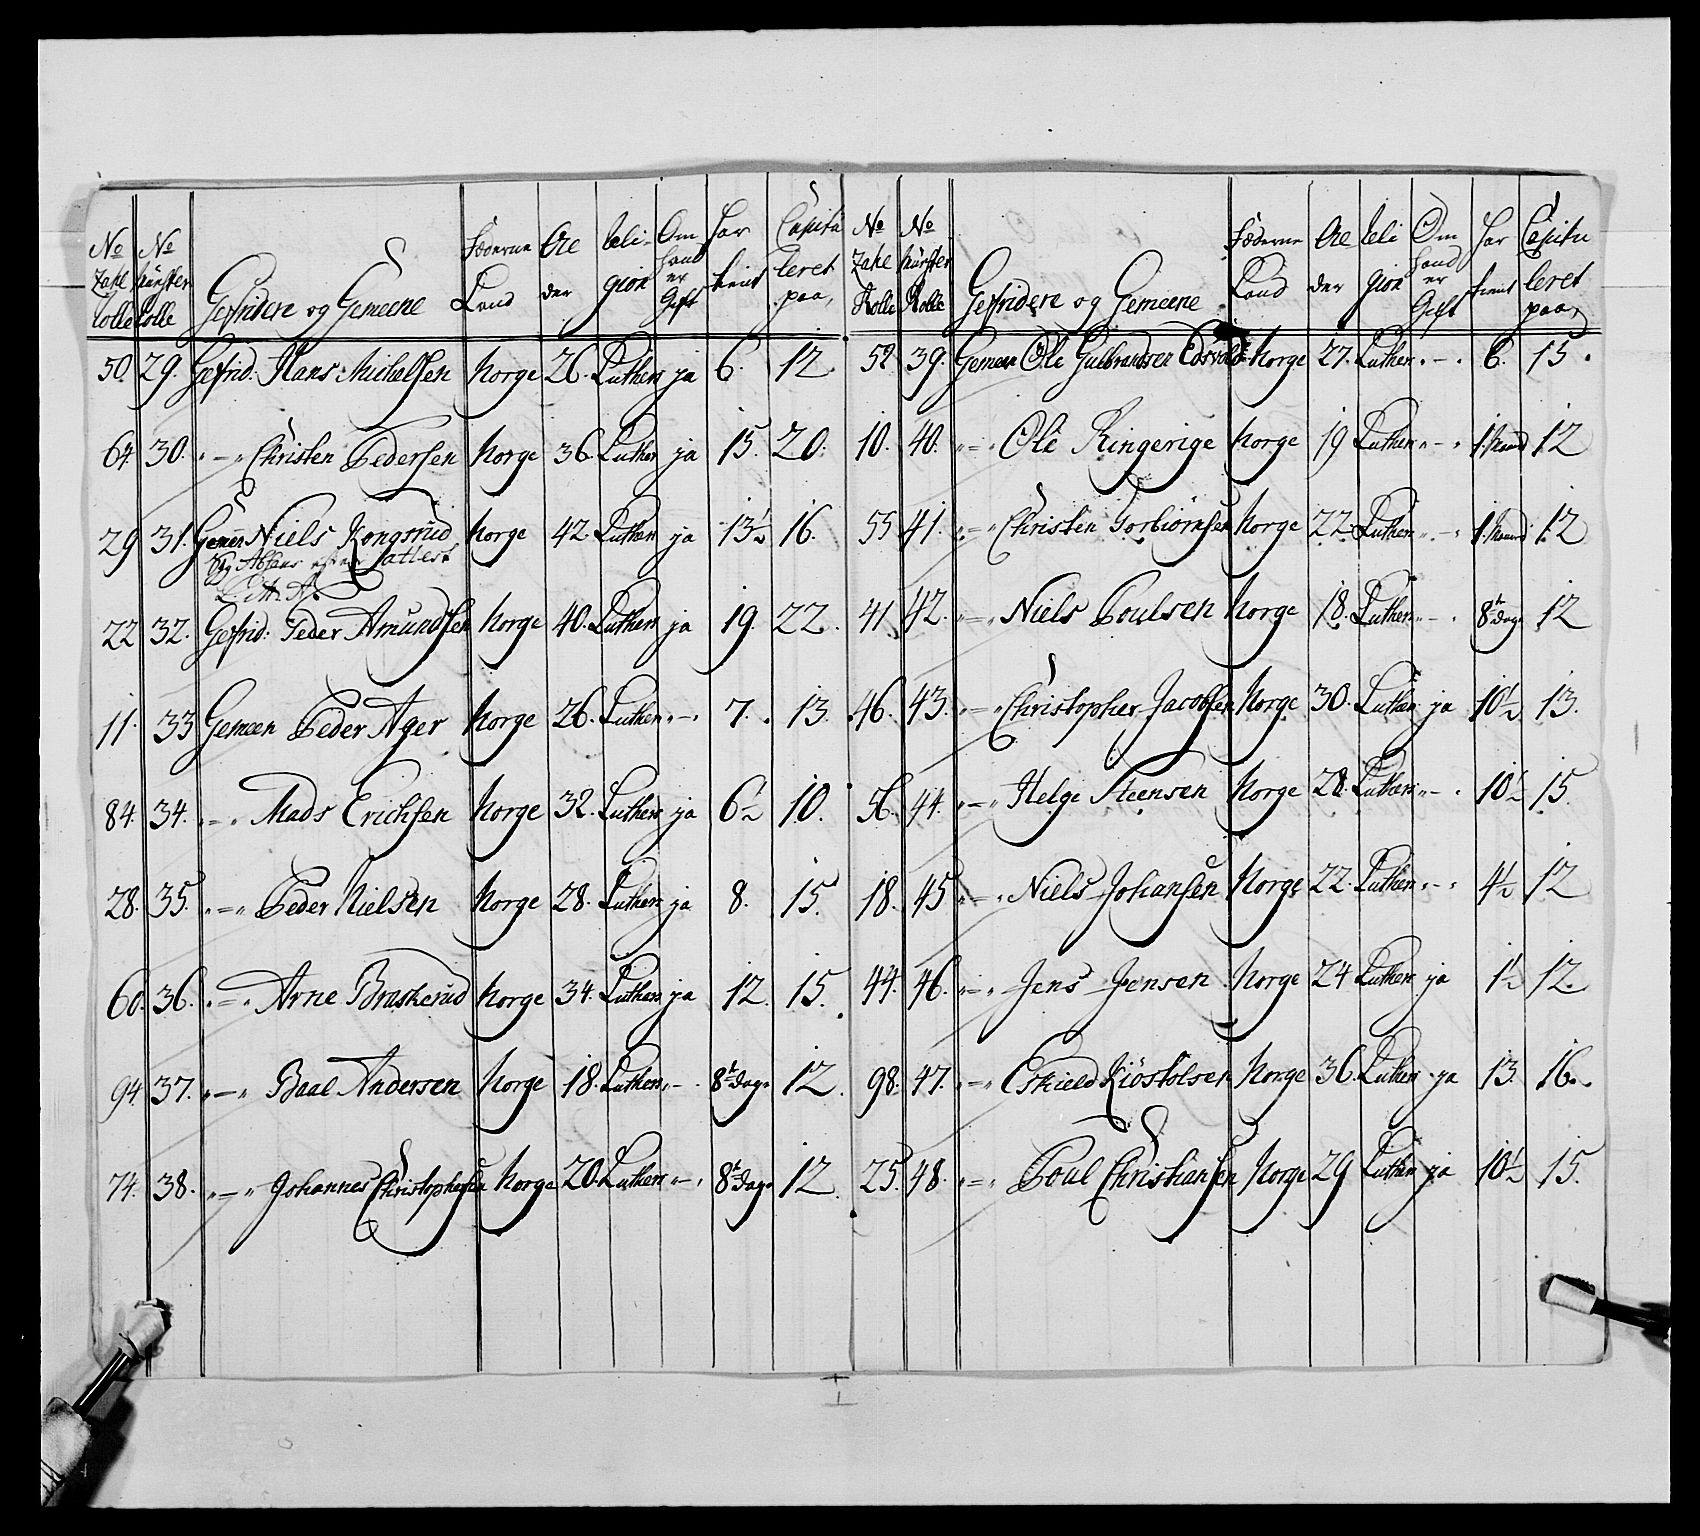 No Zahl Rolle No Münster Rolle Gefridere og Gemeene Föderne Land Al der Reli- gion Om hand er Gift har tient Capitu leret paa,
50. 29. Gefrid: Hans Michelsen Norge 26. Luthersk ja 6. 12.
64. 30. " — " Christen Pedersen Norge 36. Luthersk ja 15. 20.
29 31. Gemen Niels Kongsrud Norge 42. Luthersk ja 13½ 16.
Syg attest
Litt. A.
22 32. Gefrid: Peder Amundsen Norge 40. Luthersk ja 19. 22.
11. 33 Gemeen Peder Ager Norge 26. Luthersk " — " 7. 13.
84. 34. " — " Mads Erichsen Norge 32. Luthersk ja 6½ 10.
28. 35. " — " Peder Nielsen Norge 28. Luthersk ja 8. 15.
60. 36. " — " Arne Braskerud Norge 34. Luthersk ja 12. 15.
94. 37. " — " Baal Andersen Norge 18. Luthersk " — " 8te Dage 12.
74. 38. " — " Johannes Christophersen Norge 20. Luthersk " — " 8te Dage 12.
No Zahl Rolle No Münster Rolle Gefridere og Gemeene Föderne Land Al der Reli gion Om hand er Gift har tient Capitu leret paa,
52. 39. Gemeen Ole Gulbrandsen Norge 27. Luthersk " — " 6. 15.
10. 40. " — " Ole Ringerige Norge 19 Luthersk " — " 1. Maaned 12
55 41. " — " Christen Torbiörnsen Norge 22. Luthersk " — " 1. Maaned 12
41 42. " — " Niels Poulsen Norge 18. Luthersk " — " 8te Dage 12
46. 43. " — " Christopher Jacobsen Norge 30. Luthersk ja 10½ 13.
56. 44. " — " Helge Steensen Norge 28. Luthersk " — " 10½ 15.
18. 45 " — " Niels Johansen Norge 22. Luthersk " — " 4½ 12
44. 46. " — " Jens Jensen Norge 24 Luthersk ja 1½ 12.
98. 47. " — " Eskield Kiöstolsen Norge 36. Luthersk ja 13. 16.
25. 48. " — " Poul Christiansen Norge 29 Luthersk ja 10½ 15.